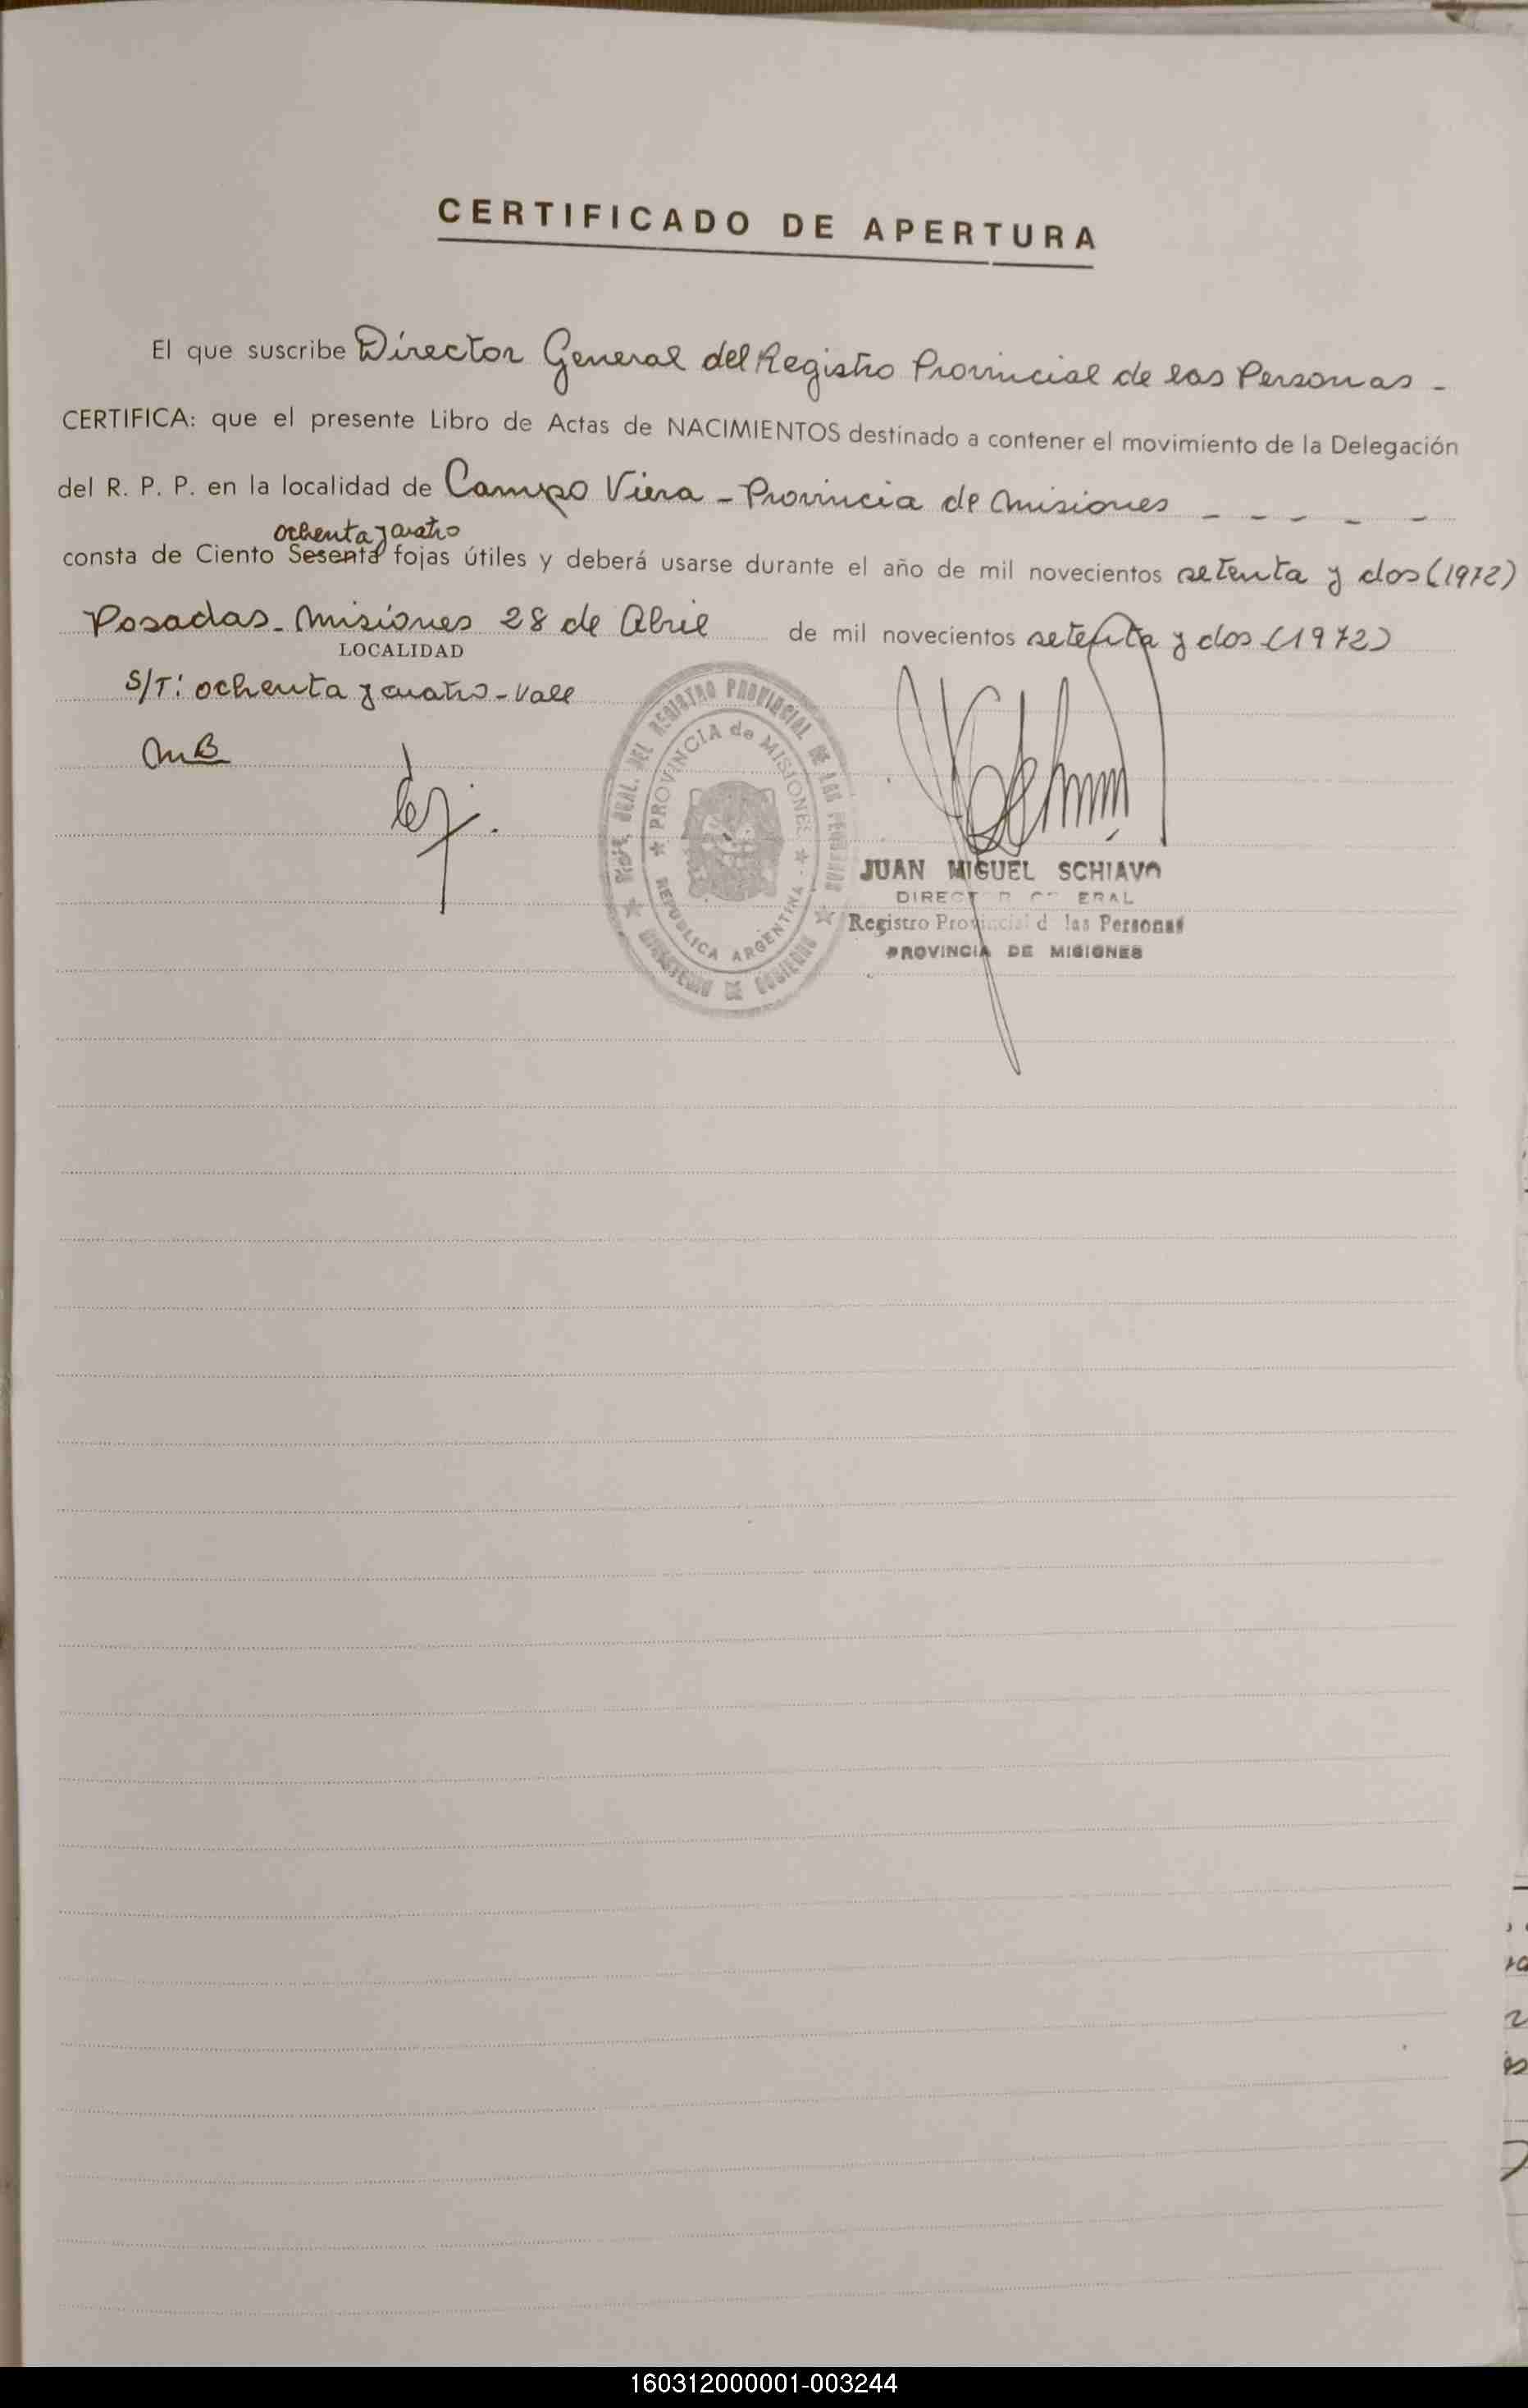 CERTIFICADO DE APERTURA
El que suscribe Director General del Registro Provincial de las Personas -
CERTIFICA: que el presente Libro de Actas de NACIMIENTOS destinado a contener el movimiento de la Delegación
del R. P. P. en la localidad de Campo Viera - Provincia de Misiones - - - - -
ochenta y cuatro
consta de Ciento Sesenta fojas útiles y deberá usarse durante el año de mil novecientos setenta y dos (1972)
Posadas - Misiones 28 de Abril de mil novecientos setenta y dos (1972)
LOCALIDAD
S/T: ochenta y cuatro - Vale
MB
DIR. GRAL. DEL REGISTRO PROVINCIAL DE LAS PERSONAS
PROVINCIA de MISIONES
REPUBLICA ARGENTINA
MINISTERIO DE GOBIERNO
JUAN MIGUEL SCHIAVO
DIRECTOR GENERAL
Registro Provincial d las Personas
PROVINCIA DE MISIONES
160312000001-003244